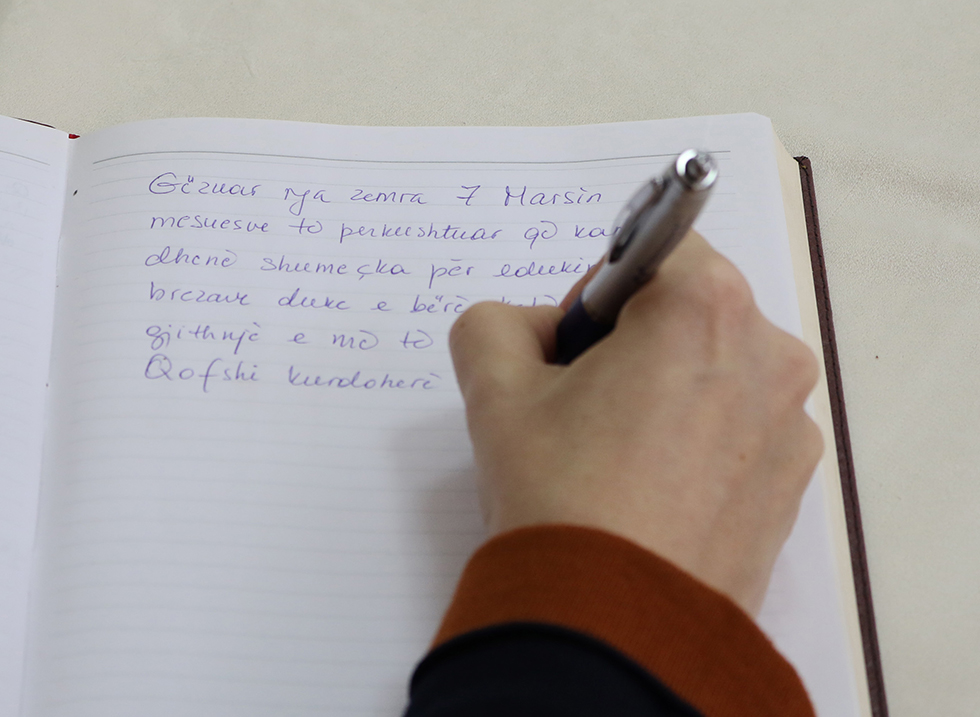 Gëzuar nga zemra 7 Marsin
mesuesve të perkushtuar që
dhenë shumeçka për
brezave duke e bërë
gjithnjë e më të
Qofshi kurdoherë